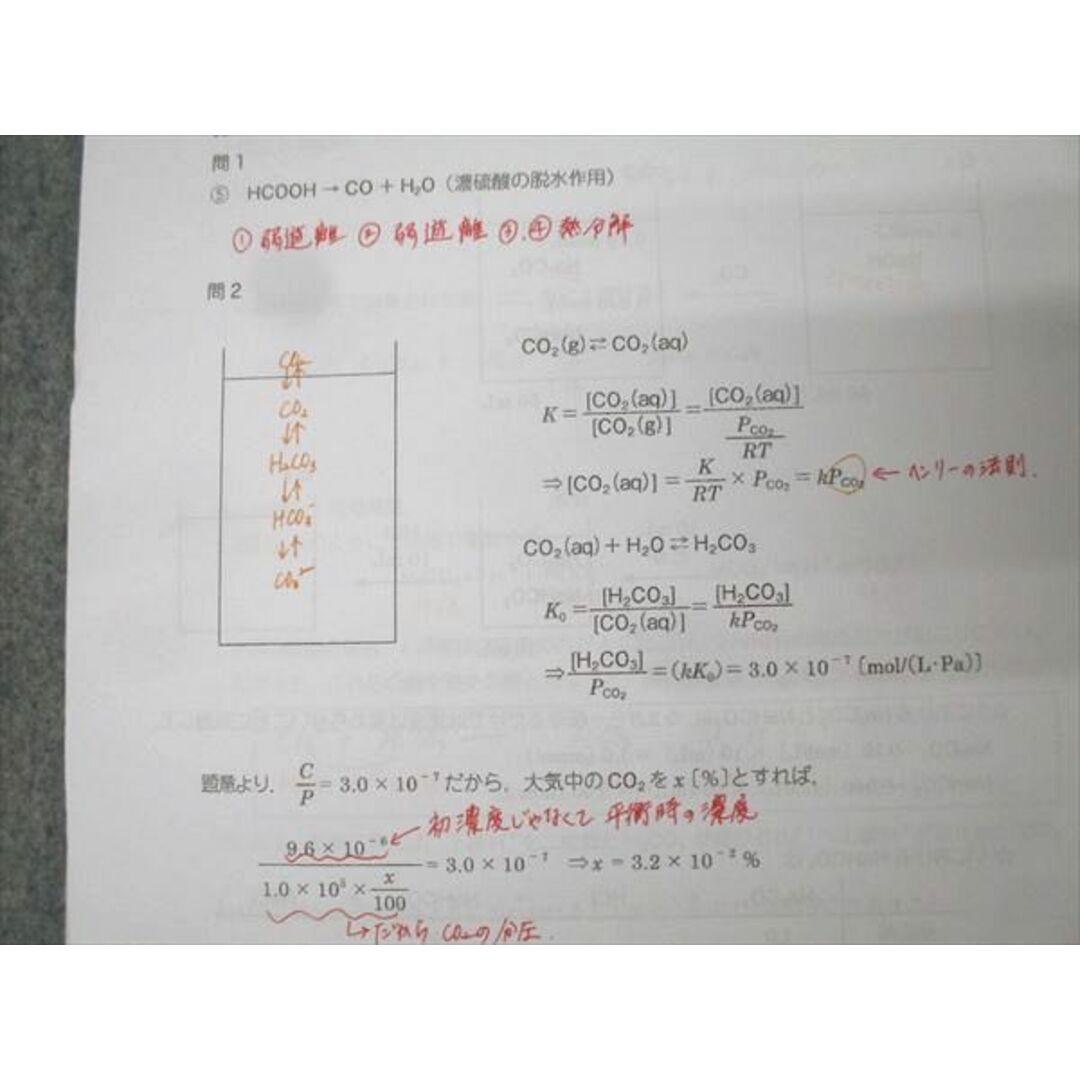 問1
⑤ HCOOH → CO + H₂O（濃硫酸の脱水作用）
① 弱遊離 ② 弱遊離 ③,④ 熱分解
問2
CO₂
⇅
CO₂
⇅
H₂CO₃
⇅
HCO₃⁻
⇅
CO₃²⁻
CO₂(g) ⇄ CO₂(aq)
K = [CO₂(aq)]/[CO₂(g)] = [CO₂(aq)]/(P_CO₂/RT)
⇒ [CO₂(aq)] = K/RT × P_CO₂ = kP_CO₂ ← ヘンリーの法則.
CO₂(aq) + H₂O ⇄ H₂CO₃
K₀ = [H₂CO₃]/[CO₂(aq)] = [H₂CO₃]/kP_CO₂
⇒ [H₂CO₃]/P_CO₂ = (kK₀) = 3.0 × 10⁻⁷〔mol/(L·Pa)〕
題意より, C/P = 3.0 × 10⁻⁷ だから, 大気中のCO₂を x〔%〕とすれば,
← 初濃度じゃなくて 平衡時の濃度
9.6 × 10⁻⁶/(1.0 × 10⁵ × x/100) = 3.0 × 10⁻⁷ ⇒ x = 3.2 × 10⁻² %
↳ だから CO₂の分圧.